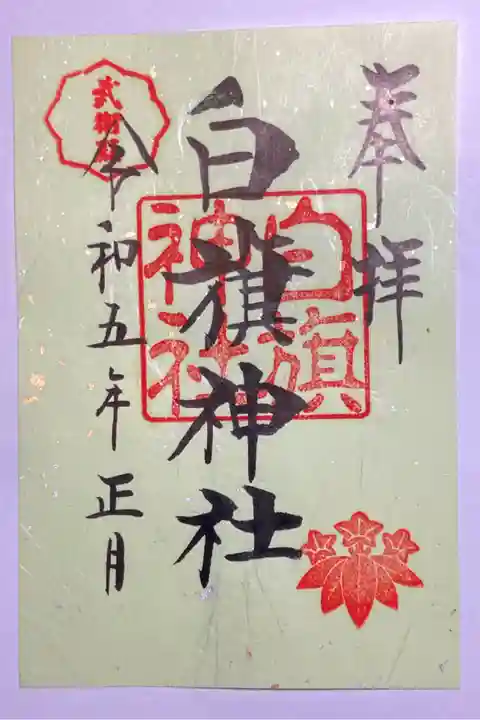 奉拝
白旗神社
白旗
神社
令和五年正月